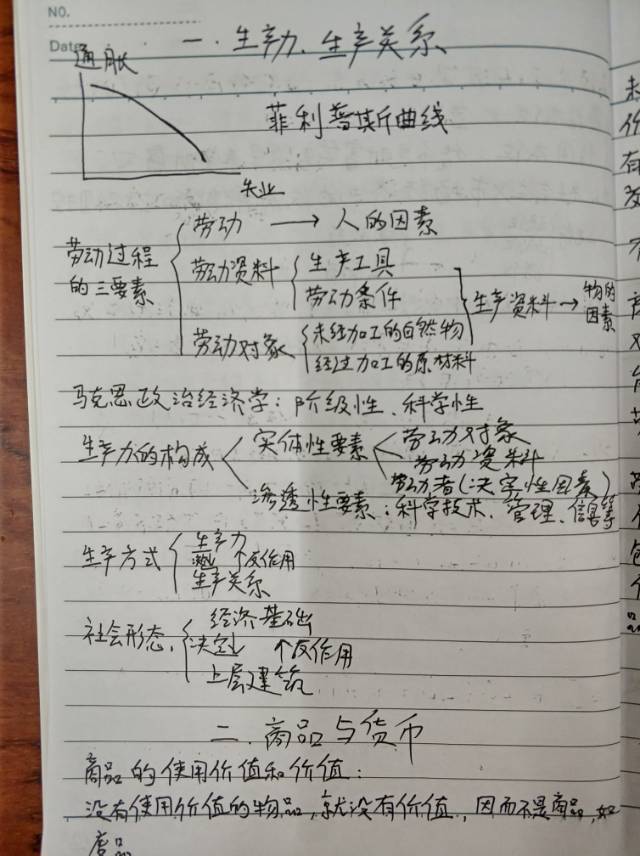 NO.
Date
一. 生产力、生产关系
通胀
菲利普斯曲线
失业
劳动过程的三要素
劳动 → 人的因素
劳动资料 生产工具
劳动条件
生产资料 → 物的因素
劳动对象 未经加工的自然物
经过加工的原材料
马克思政治经济学：阶级性、科学性
生产力的构成
实体性要素 劳动对象
劳动资料
劳动者(决定性因素)
渗透性要素：科学技术、管理、信息等
生产方式
生产力
决定 ↑反作用
生产关系
社会形态
经济基础
决定↓ ↑反作用
上层建筑
二. 商品与货币
商品的使用价值和价值：
没有使用价值的物品，就没有价值，因而不是商品，如
废品